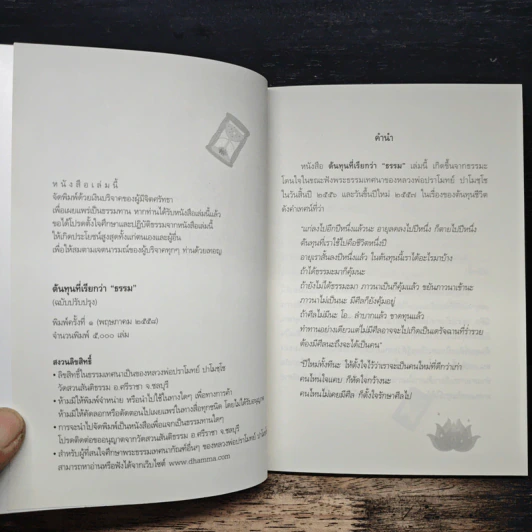 ห นั ง สื อ เ ล่ ม นี้
จัดพิมพ์ด้วยเงินบริจาคของผู้มีจิตศรัทธา
เพื่อเผยแพร่เป็นธรรมทาน หากท่านได้รับหนังสือเล่มนี้แล้ว
ขอได้โปรดตั้งใจศึกษาและปฏิบัติธรรมจากหนังสือเล่มนี้
ให้เกิดประโยชน์สูงสุดทั้งแก่ตนเองและผู้อื่น
เพื่อให้สมตามเจตนารมณ์ของผู้บริจาคทุกๆ ท่านด้วยเทอญ
ต้นทุนที่เรียกว่า "ธรรม"
(ฉบับปรับปรุง)
พิมพ์ครั้งที่ ๑ (พฤษภาคม ๒๕๕๘)
จำนวนพิมพ์ ๕,๐๐๐ เล่ม
สงวนลิขสิทธิ์
• ลิขสิทธิ์ในธรรมเทศนาเป็นของหลวงพ่อปราโมทย์ ปาโมชฺโช
วัดสวนสันติธรรม อ.ศรีราชา จ.ชลบุรี
• ห้ามมิให้พิมพ์จำหน่าย หรือนำไปใช้ในทางใดๆ เพื่อทางการค้า
ห้ามมิให้คัดลอกหรือตัดตอนไปเผยแพร่ในทางสื่อทุกชนิด โดยไม่ได้รับอนุญาต
• การจะนำไปจัดพิมพ์เป็นหนังสือเพื่อแจกเป็นธรรมทานใดๆ
โปรดติดต่อขออนุญาตจากวัดสวนสันติธรรม อ.ศรีราชา จ.ชลบุรี
• สำหรับผู้ที่สนใจศึกษาพระธรรมเทศนากัณฑ์อื่นๆ ของหลวงพ่อปราโมทย์
สามารถหาอ่านหรือฟังได้จากเว็บไซต์ www.dhamma.com
คำนำ
หนังสือ ต้นทุนที่เรียกว่า "ธรรม" เล่มนี้ เกิดขึ้นจากธรรมะ
โดนใจในขณะฟังพระธรรมเทศนาของหลวงพ่อปราโมทย์ ปาโมชฺโช
ในวันสิ้นปี ๒๕๕๖ และวันขึ้นปีใหม่ ๒๕๕๗ ในเรื่องของต้นทุนชีวิต
ดังคำเทศน์ที่ว่า
"แก่ลงไปอีกปีหนึ่งแล้วนะ อายุลดลงไปปีหนึ่ง ก็ตายไปปีหนึ่ง
ต้นทุนที่เราใช้ไปคือชีวิตหนึ่งปี
อายุเราสั้นลงปีหนึ่งแล้ว ในต้นทุนนี้เราได้อะไรมาบ้าง
ถ้าได้ธรรมะมาก็คุ้มนะ
ถ้ายังไม่ได้ธรรมะมา ภาวนาเป็นก็คุ้มแล้ว ขยันภาวนาเข้านะ
ภาวนาไม่เป็นนะ มีศีลก็ยังคุ้มอยู่
ถ้าศีลไม่มีนะ โอ.. ลำบากแล้ว ขาดทุนแล้ว
ทำทานอย่างเดียวแต่ไม่มีศีลอาจจะไปเกิดเป็นเดรัจฉานที่ร่ำรวย
ต้องมีศีลนะถึงจะได้เป็นคน"
"ปีใหม่ทั้งทีนะ ให้ตั้งใจไว้ว่าเราจะเป็นคนใหม่ที่ดีกว่าเก่า
คนไหนใจแคบ ก็หัดใจกว้างนะ
คนไหนไม่เคยมีศีล ก็ตั้งใจรักษาศีลไป